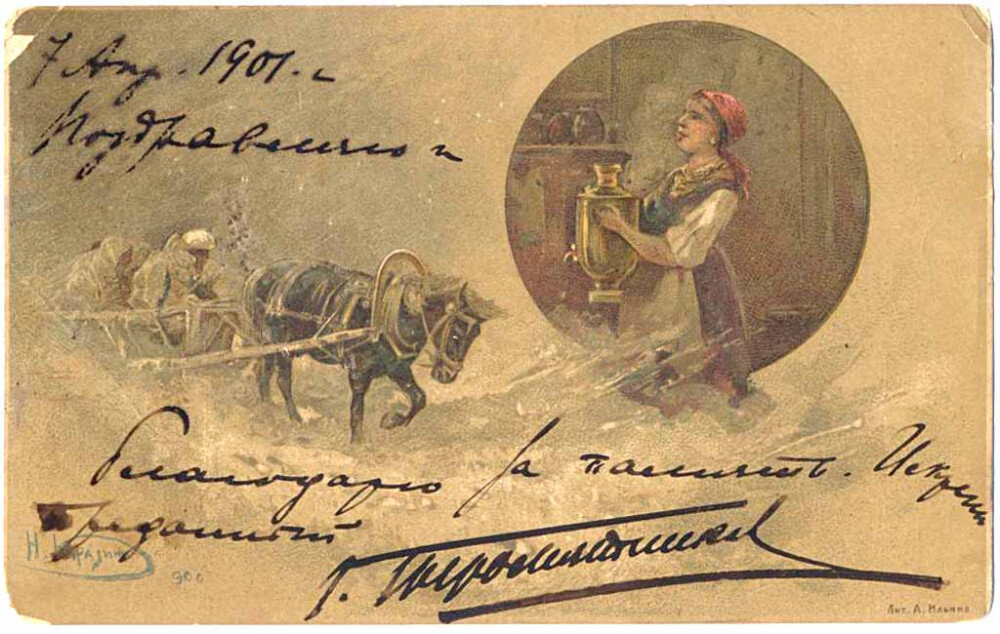 7 Апр. 1901. г.
Поздравляю и
благодарю за память. Искрен
преданный
Н. Каразин
900
Лит. А. Ильина